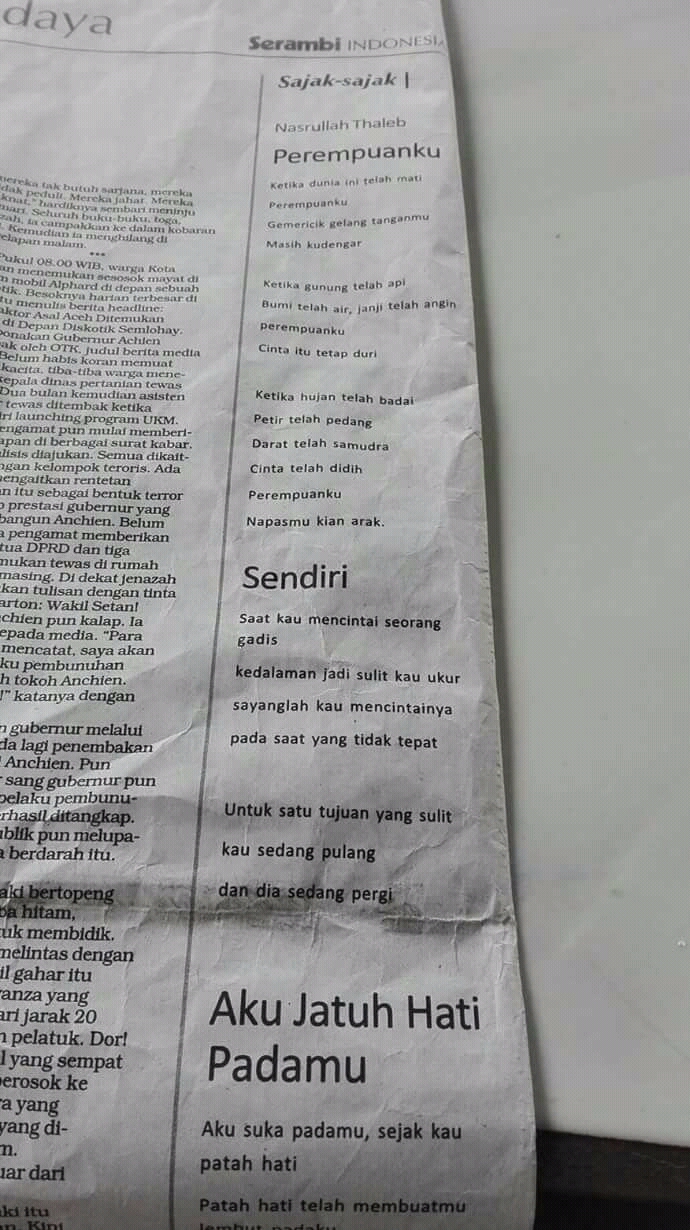 daya
Serambi INDONESIA
mereka tak butuh sarjana, mereka
dak peduli. Mereka jahat. Mereka
knat," hardiknya sembari meninju
mari. Seluruh buku-buku, toga,
zah, ia campakkan ke dalam kobaran
i. Kemudian ia menghilang di
elapan malam.
***
Pukul 08.00 WIB, warga Kota
an menemukan sesosok mayat di
m mobil Alphard di depan sebuah
tik. Besoknya harian terbesar di
tu menulis berita headline:
aktor Asal Aceh Ditemukan
di Depan Diskotik Semlohay.
ponakan Gubernur Achien
ak oleh OTK, judul berita media
Belum habis koran memuat
kacita, tiba-tiba warga mene-
kepala dinas pertanian tewas
Dua bulan kemudian asisten
r tewas ditembak ketika
iri launching program UKM.
engamat pun mulai memberi-
apan di berbagai surat kabar.
lisis diajukan. Semua dikait-
ngan kelompok teroris. Ada
mengaitkan rentetan
an itu sebagai bentuk terror
p prestasi gubernur yang
bangun Anchien. Belum
a pengamat memberikan
tua DPRD dan tiga
mukan tewas di rumah
masing. Di dekat jenazah
kan tulisan dengan tinta
arton: Wakil Setan!
chien pun kalap. Ia
epada media. "Para
mencatat, saya akan
ku pembunuhan
h tokoh Anchien.
!" katanya dengan
n gubernur melalui
da lagi penembakan
l Anchien. Pun
r sang gubernur pun
pelaku pembunu-
erhasil ditangkap.
ublik pun melupa-
a berdarah itu.
aki bertopeng
ba hitam,
tuk membidik.
melintas dengan
il gahar itu
vanza yang
ari jarak 20
n pelatuk. Dor!
l yang sempat
perosok ke
ra yang
yang di-
m.
uar dari
aki itu
an. Kini
Sajak-sajak |
Nasrullah Thaleb
Perempuanku
Ketika dunia ini telah mati
Perempuanku
Gemericik gelang tanganmu
Masih kudengar
Ketika gunung telah api
Bumi telah air, janji telah angin
perempuanku
Cinta itu tetap duri
Ketika hujan telah badai
Petir telah pedang
Darat telah samudra
Cinta telah didih
Perempuanku
Napasmu kian arak.
Sendiri
Saat kau mencintai seorang
gadis
kedalaman jadi sulit kau ukur
sayanglah kau mencintainya
pada saat yang tidak tepat
Untuk satu tujuan yang sulit
kau sedang pulang
dan dia sedang pergi
Aku Jatuh Hati
Padamu
Aku suka padamu, sejak kau
patah hati
Patah hati telah membuatmu
lembut padaku